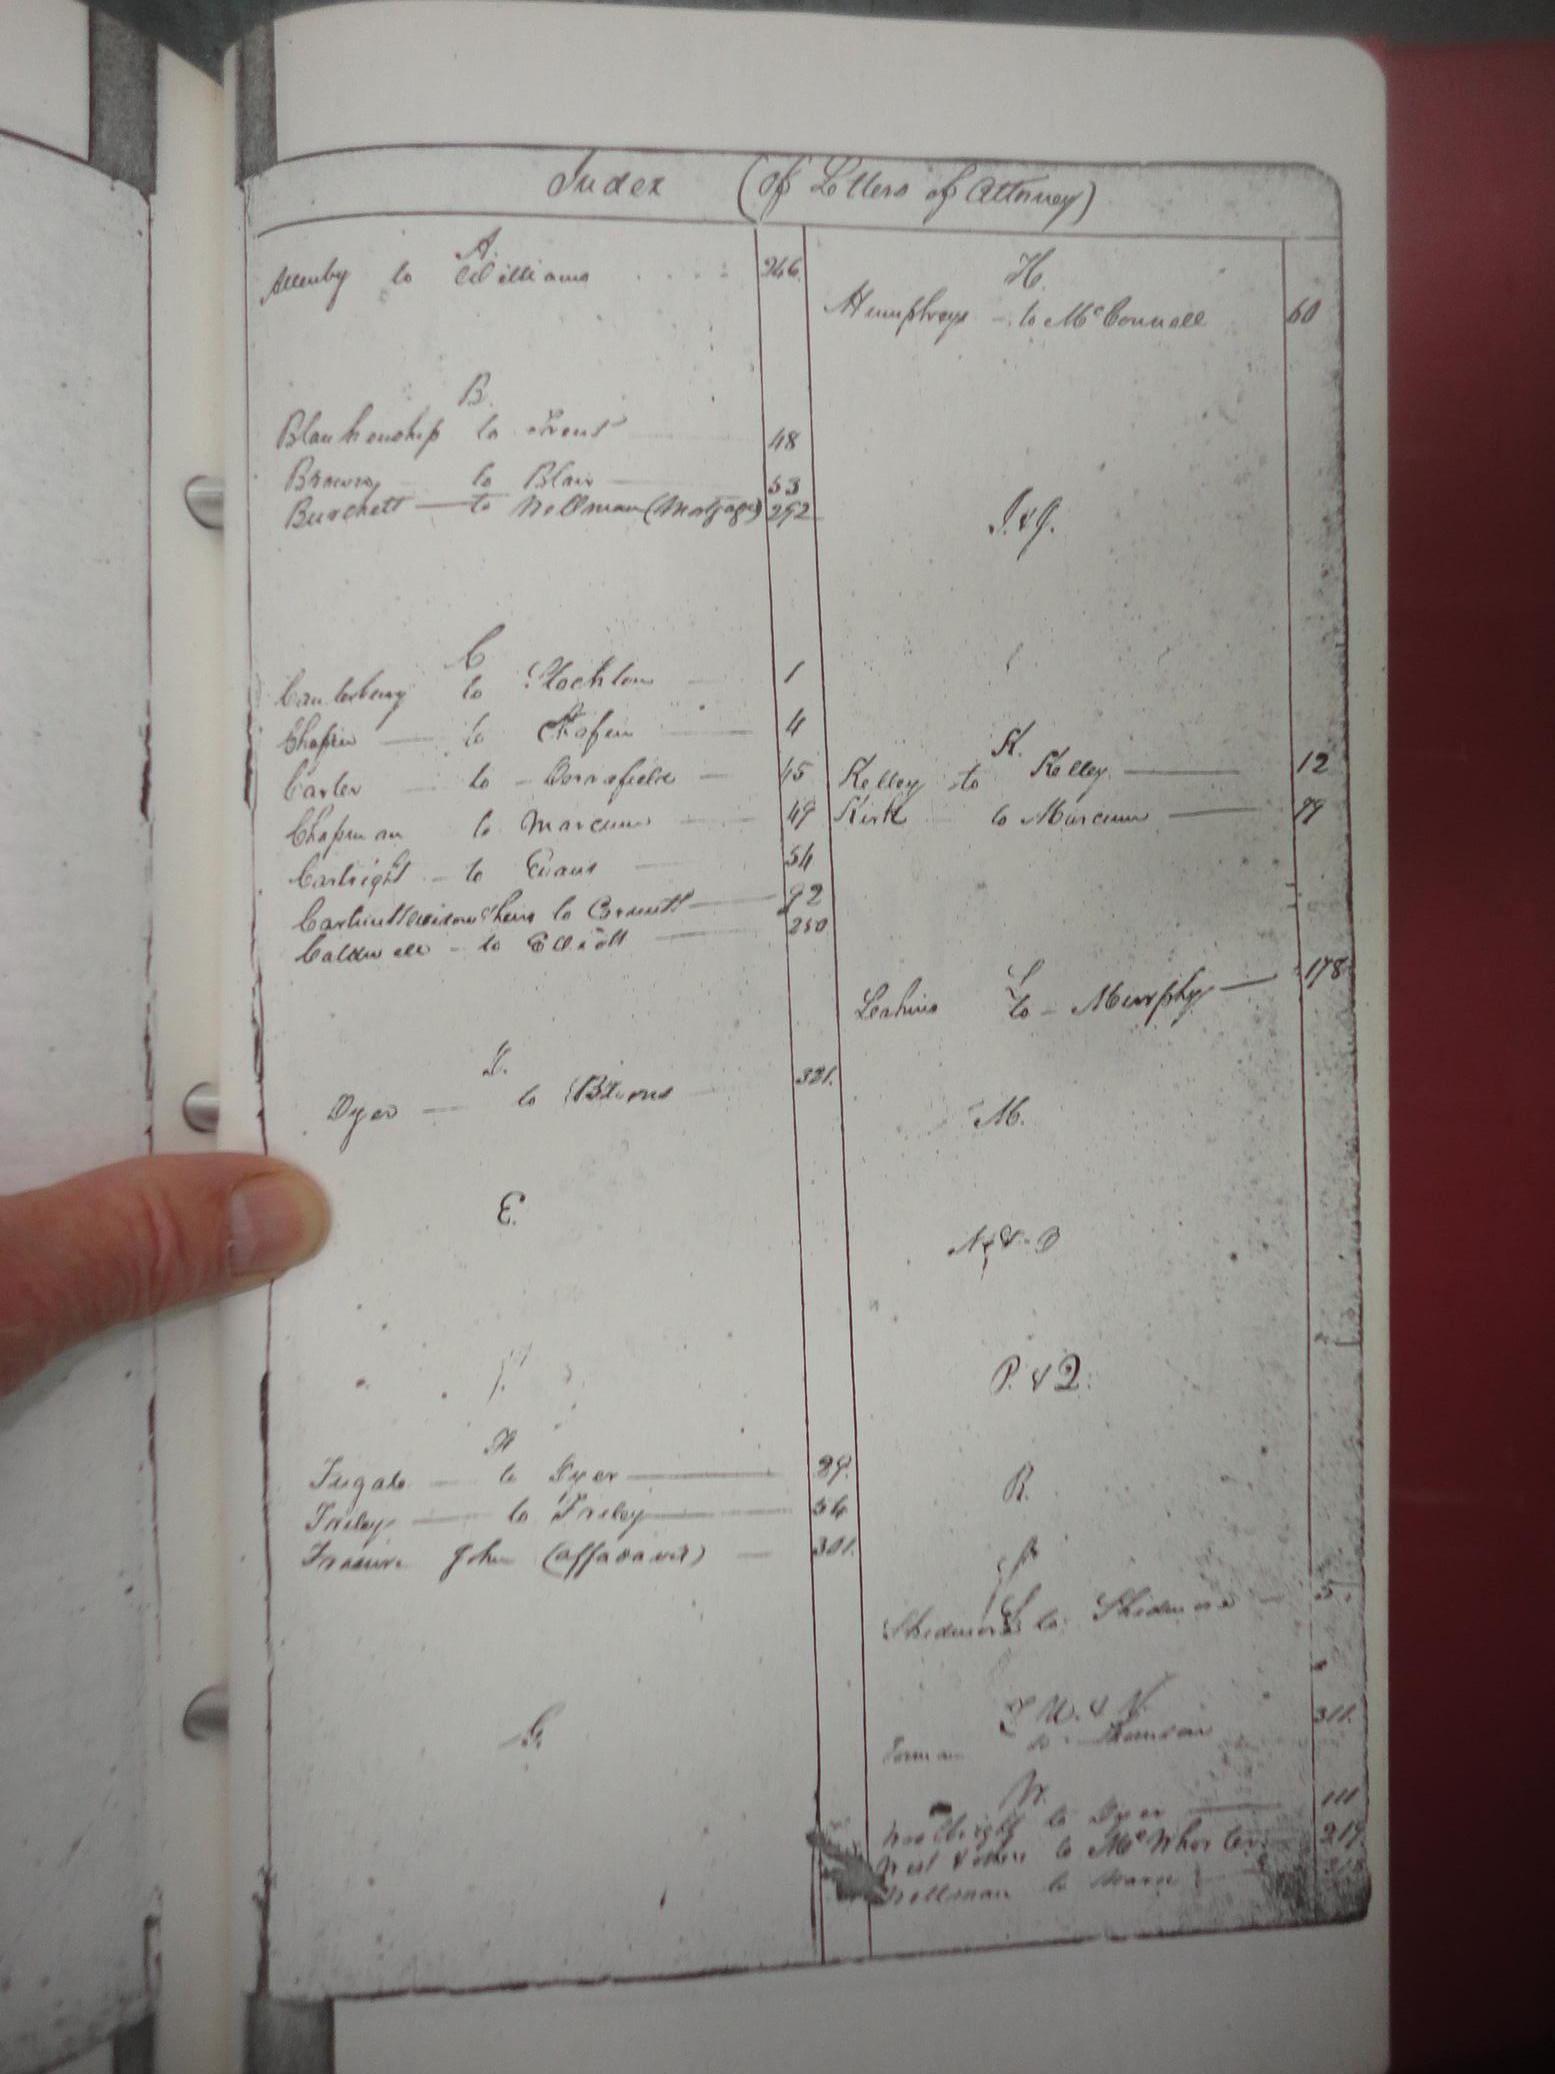 Index (of Letters of Attorney)
A.
Allenby to Williams 246
B.
Blankenship to Frost 48
Brown to Blair 53
Burchett to Wellman (Mortgage) 292
C
Canterberry to Stockton 1
Chapin to Chapin 4
Carter to 45
Chapman to Marcum 49
Cartright to Evans 54
to 92
Caldwell to Elliott 250
D.
Dyer to Burns 321.
E.
F
Fugate to Dyer 89.
Friley to Friley 54
Frasure John (affadavit) 301.
G.
H.
Humphreys to McConnell 60
I. & J.
K.
Kelley to Kelley 12
Kirk to Marcum 99
L
Lakins to Murphy 178
M.
N & O
P. & Q.
R.
S
Skidmore to Skidmore 5.
T U. & V.
to 311.
W.
to Dyer 111
West & others to McWhorter 219.
Wellman to